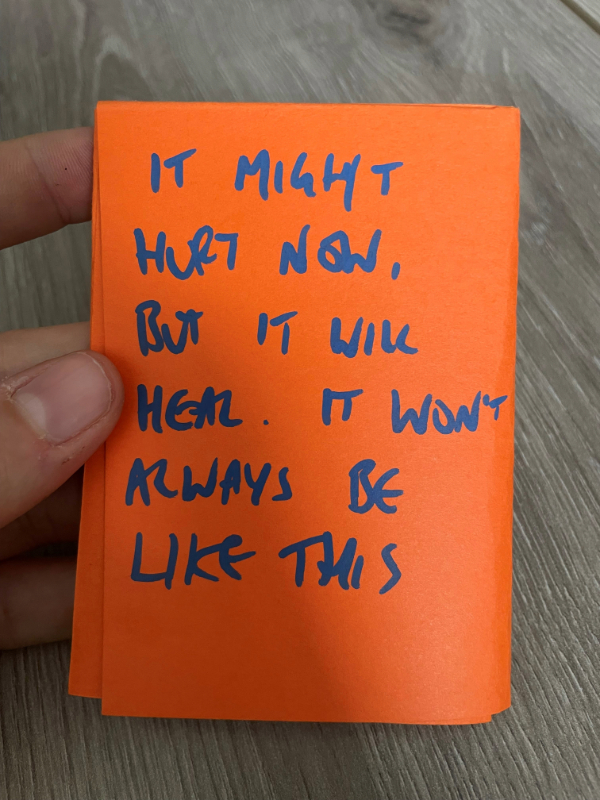 IT MIGHT
HURT NOW,
BUT IT WILL
HEAL. IT WON'T
ALWAYS BE
LIKE THIS